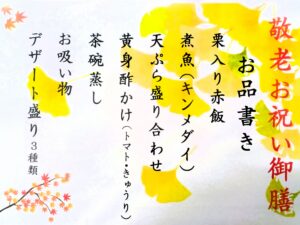 敬老お祝い御膳
お品書き
栗入り赤飯
煮魚(キンメダイ)
天ぷら盛り合わせ
黄身酢かけ(トマト・きゅうり)
茶碗蒸し
お吸い物
デザート盛り3種類